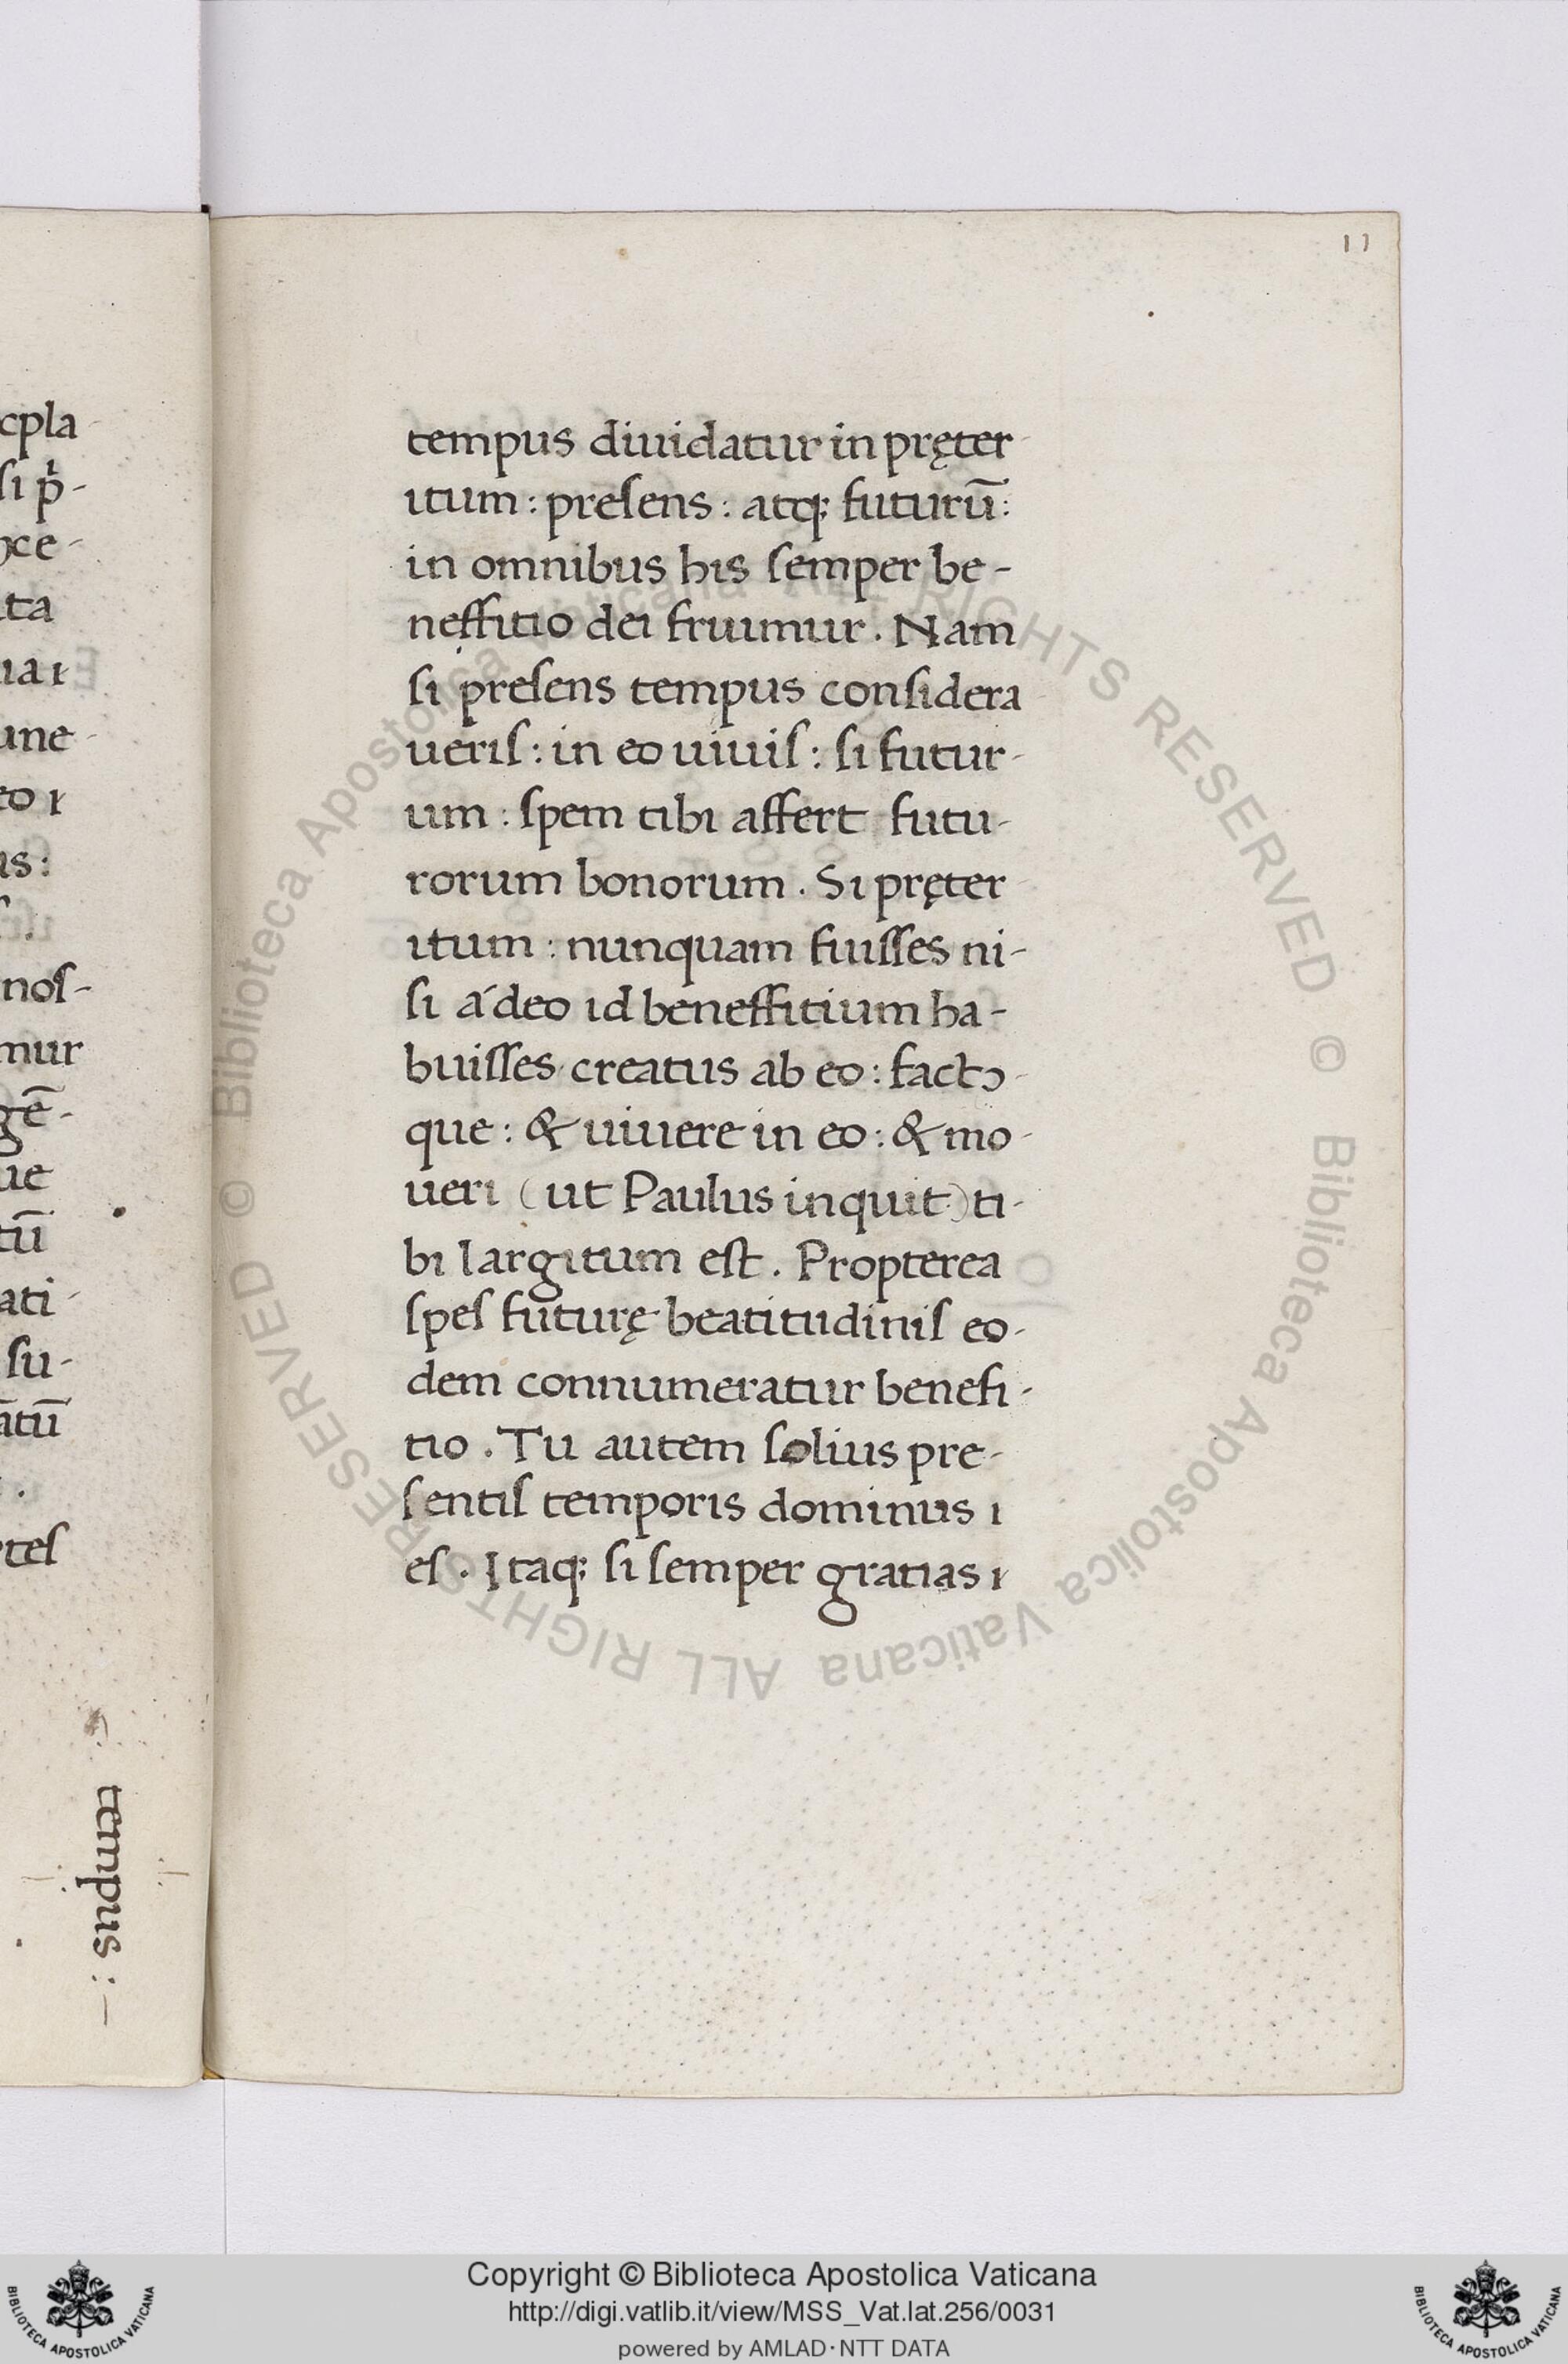 cpla
si p̄-
ce-
ta
ua ı
une-
eo ı
us:
nos-
mur
gē-
ue
tū
ati-
su-
ātū
tes
tempus:
11
tempus diuidatur in pręter-
itum: presens: atq; futurū:
in omnibus his semper be-
neffitio dei fruimur. Nam
si presens tempus considera
ueris: in eo uiuis: si futur-
um: spem tibi affert futu-
rorum bonorum. Si pręter
itum: nunquam fuisses ni-
si á deo id beneffitium ha-
buisses creatus ab eo: factɔ-
que: & uiuere in eo: & mo-
ueri (ut Paulus inquit) ti-
bi largitum est. Propterea
spes futurę beatitudinis eo-
dem connumeratur benefi-
tio. Tu autem solius pre-
sentis temporis dominus ı
es. Itaq; si semper gratias ı
© Biblioteca Apostolica Vaticana ALL RIGHTS RESERVED © Biblioteca Apostolica Vaticana ALL RIGHTS RESERVED
Copyright © Biblioteca Apostolica Vaticana
http://digi.vatlib.it/view/MSS_Vat.lat.256/0031
powered by AMLAD·NTT DATA
BIBLIOTECA APOSTOLICA VATICANA
BIBLIOTECA APOSTOLICA VATICANA